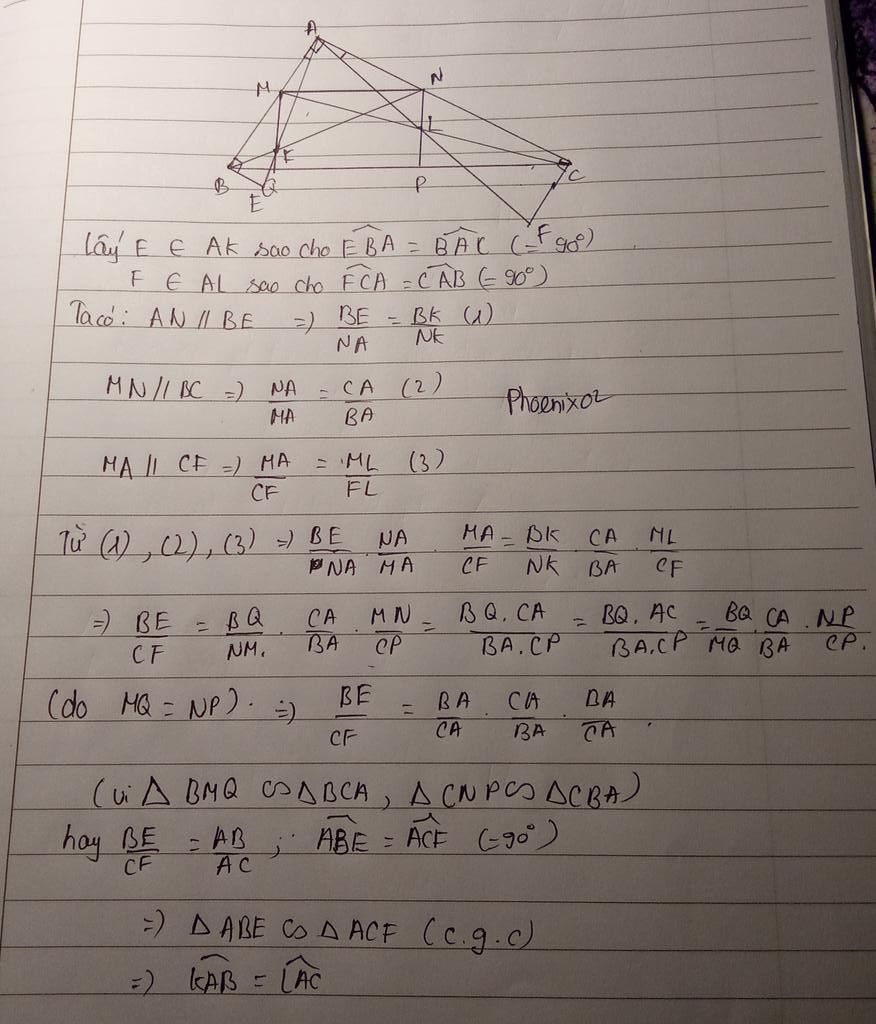 A
M N
K L
B Q P C
E F
Lấy E ∈ AK sao cho \widehat{EBA} = \widehat{BAC} (= 90°)
F ∈ AL sao cho \widehat{FCA} = \widehat{CAB} (= 90°)
Ta có: AN // BE => BE/NA = BK/NK (1)
MN // BC => NA/MA = CA/BA (2) Phoenix02
MA // CF => MA/CF = ML/FL (3)
Từ (1), (2), (3) => BE/NA . NA/MA . MA/CF = BK/NK . CA/BA . ML/CF
=> BE/CF = BQ/NM. . CA/BA . MN/CP = BQ.CA/BA.CP = BQ.AC/BA.CP = BQ/MQ . CA/BA . NP/CP.
(do MQ = NP). => BE/CF = BA/CA . CA/BA . BA/CA .
(vì Δ BMQ ∽ Δ BCA, Δ CNP ∽ Δ CBA)
hay BE/CF = AB/AC ; \widehat{ABE} = \widehat{ACF} (= 90°)
=> Δ ABE ∽ Δ ACF (c.g.c)
=> \widehat{KAB} = \widehat{LAC}